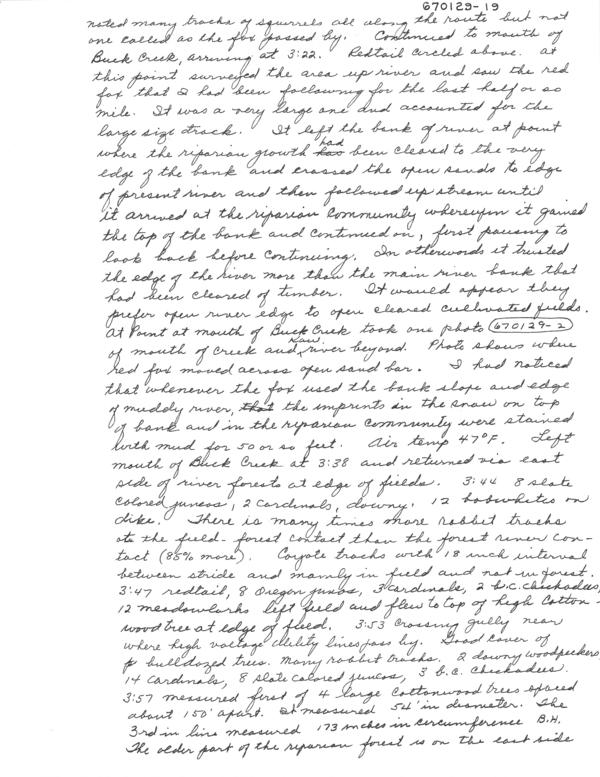 670129-19
noted many tracks of squirrels all along the route but not
one called as the fox passed by. Continued to mouth of
Buck Creek, arriving at 3:22. Redtail circled above. At
this point surveyed the area up river and saw the red
fox that I had been following for the last half or so
mile. It was a very large one and accounted for the
large size track. It left the bank of river at point
where the riparian growth has had been cleared to the very
edge of the bank and crossed the open sands to edge
of present river and then followed up stream until
it arrived at the riparian community whereupon it gained
the top of the bank and continued on, first pausing to
look back before continuing. In otherwords it trusted
the edge of the river more than the main river bank that
had been cleared of timber. It would appear they
prefer open river edge to open cleared cultivated fields.
At Point at mouth of Buck Creek took one photo 670129-2
of mouth of Creek and Kaw river beyond. Photo shows where
red fox moved across open sand bar. I had noticed
that whenever the fox used the bank slope and edge
of muddy river, that the imprints in the snow on top
of bank and in the riparian community were stained
with mud for 50 or so feet. Air temp 47°F. Left
mouth of Buck Creek at 3:38 and returned via east
side of river forests at edge of fields. 3:44 8 slate
colored juncos, 2 cardinals, downy. 12 bobwhites on
dike. There is many times more rabbit tracks
at the field-forest contact than the forest river con-
tact (85% more). Coyote tracks with 18 inch interval
between stride and mainly in field and not in forest.
3:47 redtail, 8 Oregon juncos, 3 cardinals, 2 b.c. chickadees,
12 meadowlarks left field and flew to top of high cotton-
wood tree at edge of field. 3:53 crossing gully near
where high voltage utility lines pass by. Good cover of
bulldozed trees. Many rabbit tracks. 2 downy woodpeckers
14 cardinals, 8 slate colored juncos, 3 b.c. chickadees.
3:57 measured first of 4 large cottonwood trees spaced
about 150' apart. It measured 54" in diameter. The
3rd in line measured 173 inches in circumference B.H.
The older part of the riparian forest is on the east side